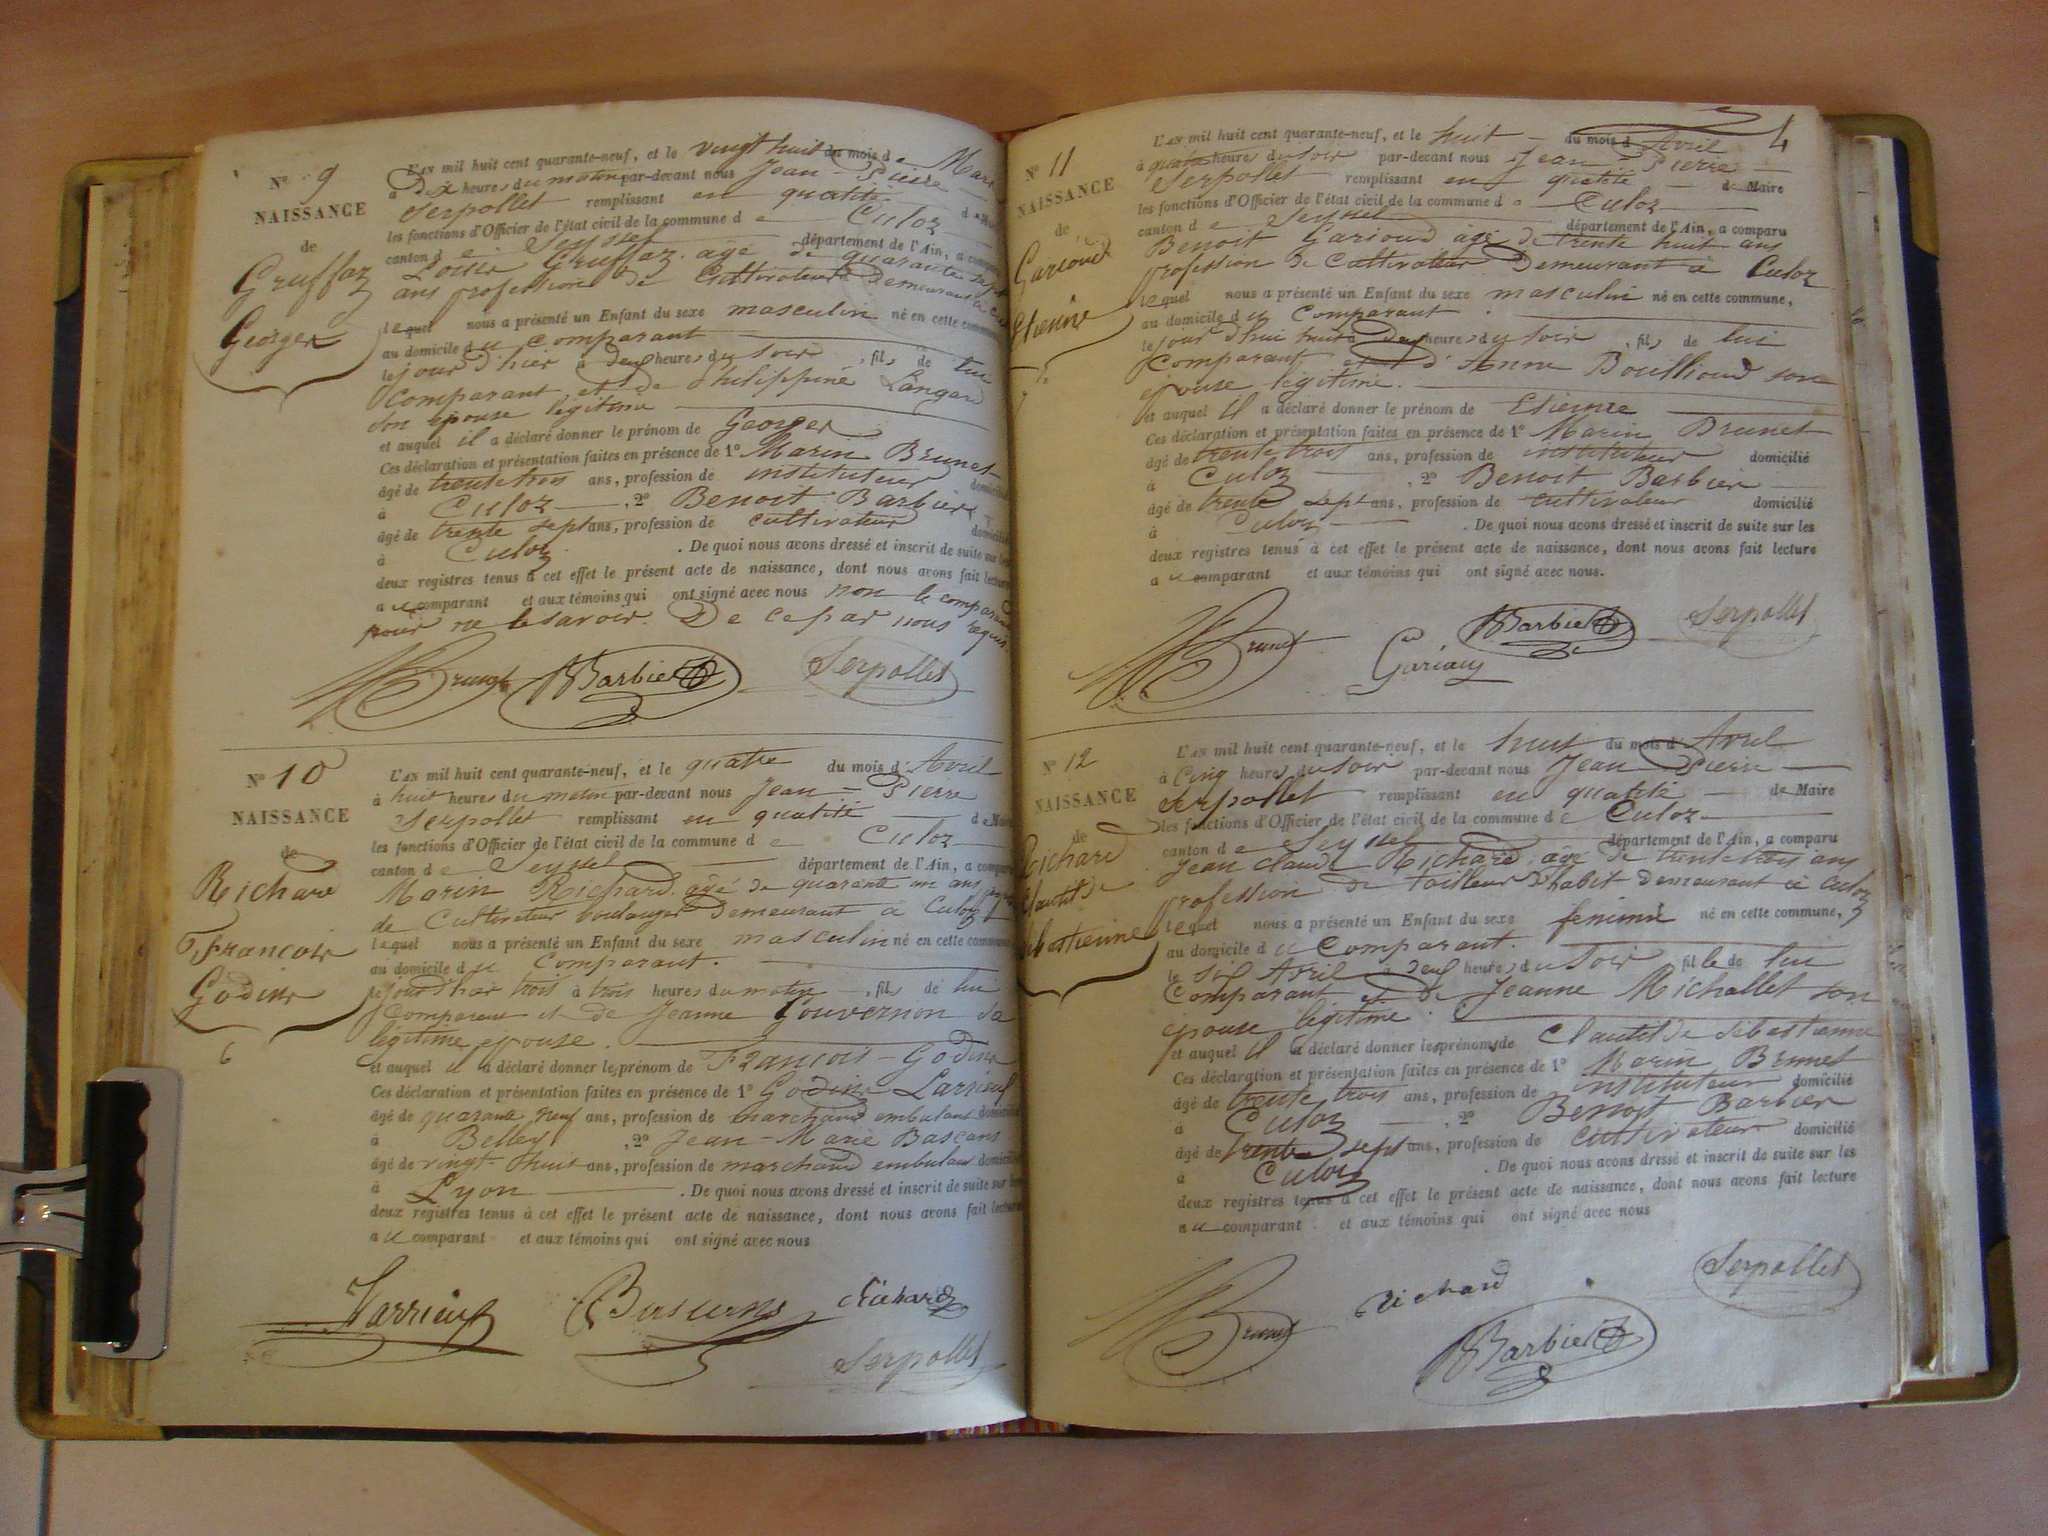 N° 9
NAISSANCE
de
Gruffaz
Georges
L'AN mil huit cent quarante-neuf, et le vingt huit du mois de Mars
à Dix heures du matin par-devant nous Jean-Pierre
Serpollet remplissant en qualité de Maire
les fonctions d'Officier de l'état civil de la commune de Culoz
canton de Seyssel département de l'Ain, a comparu
Louis Gruffaz âgé de quarante sept
ans profession de Cultivateur demeurant à Culoz
lequel nous a présenté un Enfant du sexe masculin né en cette commune
au domicile du comparant
le jour d'hier à deux heures du soir, fils de lui
comparant et de Philippine Langard
son épouse légitime
et auquel il a déclaré donner le prénom de Georges
Ces déclaration et présentation faites en présence de 1° Marin Brunet
âgé de trente trois ans, profession de instituteur domicilié
à Culoz, 2° Benoit Barbier
âgé de trente sept ans, profession de cultivateur domicilié
à Culoz. De quoi nous avons dressé et inscrit de suite sur les
deux registres tenus à cet effet le présent acte de naissance, dont nous avons fait lecture
au comparant et aux témoins qui ont signé avec nous non le comparant
pour ne le savoir. De ce par nous requis.
Brunet Barbier Serpollet
N° 10
NAISSANCE
de
Richard
François
Godine
6
L'AN mil huit cent quarante-neuf, et le quatre du mois d'Avril
à huit heures du matin par-devant nous Jean-Pierre
Serpollet remplissant en qualité de Maire
les fonctions d'Officier de l'état civil de la commune de Culoz
canton de Seyssel département de l'Ain, a comparu
Marin Richard âgé de quarante un ans
de Cultivateur boulanger demeurant à Culoz
lequel nous a présenté un Enfant du sexe masculin né en cette commune
au domicile du Comparant.
le jour d'hier trois à trois heures du matin, fils de lui
Comparant et de Jeanne Gouvernon sa
légitime epouse.
et auquel il a déclaré donner les prénom de François-Godine
Ces déclaration et présentation faites en présence de 1° Godine Larrieux
âgé de quarante neuf ans, profession de marchand embulant domicilié
à Belley, 2° Jean-Marie Bascans
âgé de vingt-huit ans, profession de marchand embulant domicilié
à Lyon. De quoi nous avons dressé et inscrit de suite sur les
deux registres tenus à cet effet le présent acte de naissance, dont nous avons fait lecture
au comparant et aux témoins qui ont signé avec nous
Larrieux Bascans Richard
Serpollet
4
N° 11
NAISSANCE
de
Garioud
Etienne
L'AN mil huit cent quarante-neuf, et le huit du mois d'Avril
à quatre heures du soir par-devant nous Jean-Pierre
Serpollet remplissant en qualité de Maire
les fonctions d'Officier de l'état civil de la commune de Culoz
canton de Seyssel département de l'Ain, a comparu
Benoit Garioud âgé de trente huit ans
profession de Cultivateur Demeurant à Culoz
lequel nous a présenté un Enfant du sexe masculin né en cette commune,
au domicile du Comparant.
le jour d'hui huit à deux heures du soir, fils de lui
Comparant et d'Anne Bouilloud son
epouse légitime.
et auquel il a déclaré donner le prénom de Etienne
Ces déclaration et présentation faites en présence de 1° Marin Brunet
âgé de trente trois ans, profession de instituteur domicilié
à Culoz, 2° Benoit Barbier
âgé de trente sept ans, profession de cultivateur domicilié
à Culoz. De quoi nous avons dressé et inscrit de suite sur les
deux registres tenus à cet effet le présent acte de naissance, dont nous avons fait lecture
au comparant et aux témoins qui ont signé avec nous.
Brunet Barbier Serpollet
Garioud
N° 12
NAISSANCE
de
Richard
Clautilde
Sébastienne
L'AN mil huit cent quarante-neuf, et le huit du mois d'Avril
à Cinq heures du soir par-devant nous Jean Pierre
Serpollet remplissant en qualité de Maire
les fonctions d'Officier de l'état civil de la commune de Culoz
canton de Seyssel département de l'Ain, a comparu
Jean Claude Richard âgé de trente trois ans
profession de tailleur d'habit demeurant à Culoz
lequel nous a présenté un Enfant du sexe feminin né en cette commune,
au domicile du Comparant.
le Six Avril à deux heures du soir, fille de lui
Comparant et de Jeanne Michallet son
epouse légitime.
et auquel il a déclaré donner les prénoms de Clautilde Sébastienne
Ces déclaration et présentation faites en présence de 1° Marin Brunet
âgé de trente trois ans, profession de instituteur domicilié
à Culoz, 2° Benoit Barbier
âgé de trente sept ans, profession de cultivateur domicilié
à Culoz. De quoi nous avons dressé et inscrit de suite sur les
deux registres tenus à cet effet le présent acte de naissance, dont nous avons fait lecture
au comparant et aux témoins qui ont signé avec nous
Brunet Richard Serpollet
Barbier